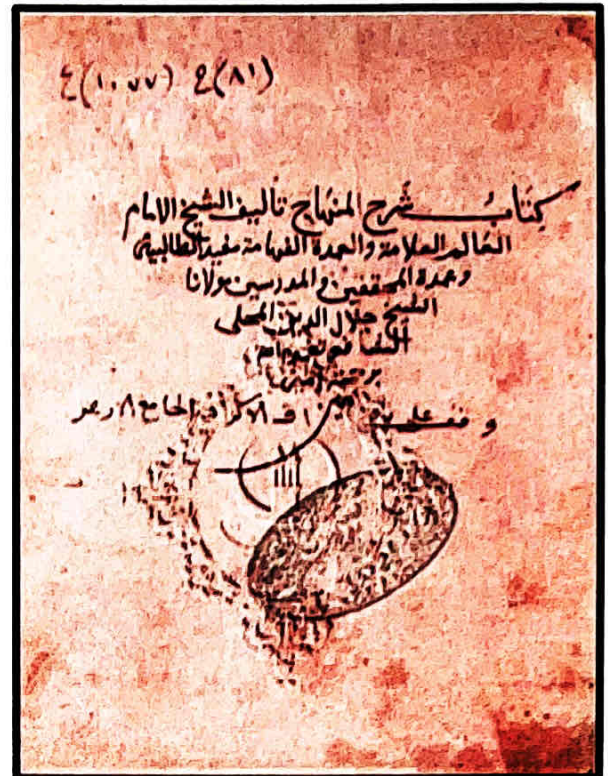 (٨١)ع (١٠٧٧)ع
كتاب شرح المنهاج تأليف الشيخ الامام
العالم العلامة والعمدة الفهامة مفيد الطالبين
وعمدة المحققين والمدرسين مولانا
الشيخ جلال الدين المحلى
الشافعى تغمده الله
برحمته امين
وقف الاكراد الجامع الازهر